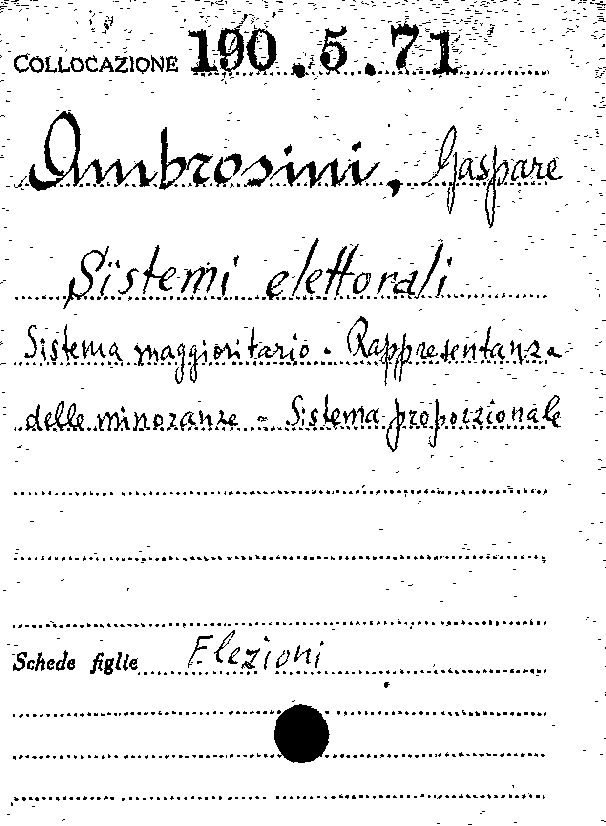 COLLOCAZIONE 190.5.71
Ambrosini, Gaspare
Sistemi elettorali
Sistema maggioritario - Rappresentanza
delle minoranze - Sistema proporzionale
Schede figlie Elezioni